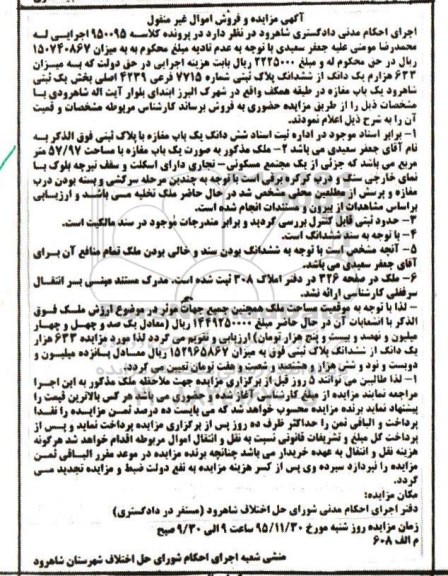 آگهی مزایده و فروش اموال غیر منقول
اجرای احکام مدنی دادگستری شاهرود در نظر دارد در پرونده کلاسه ۹۵۰۰۹۵ اجرایی له
محمدرضا مومنی علیه جعفر سعیدی با توجه به عدم تادیه مبلغ محکوم به به میزان ۱۵۰۷۴۰۸۶۷
ریال در حق محکوم له و مبلغ ۲۲۲۵۰۰۰ ریال بابت هزینه اجرایی در حق دولت که به میزان
۶۳۳ هزارم یک دانگ از ششدانگ پلاک ثبتی شماره ۷۷۱۵ فرعی ۴۲۳۹ اصلی بخش یک ثبتی
شاهرود یک باب مغازه در طبقه همکف واقع در شهرک البرز ابتدای بلوار آیت اله شاهرودی با
مشخصات ذیل را از طریق مزایده حضوری به فروش برساند کارشناس مربوطه مشخصات و قیمت
آن را به شرح ذیل اعلام نمودند.
۱- برابر اسناد موجود در اداره ثبت اسناد شش دانگ یک باب مغازه با پلاک ثبتی فوق الذکر به
نام آقای جعفر سعیدی می باشد ۲- ملک مذکور به صورت یک باب مغازه با مساحت ۵۷/۹۷ متر
مربع می باشد که جزئی از یک مجتمع مسکونی- تجاری دارای اسکلت و سقف تیرچه بلوک با
نمای خارجی سنگ و درب کرکره برقی است با توجه به چندین مرحله سرکشی و بسته بودن درب
مغازه و پرسش از مطلعین محلی مشخص شد در حال حاضر ملک تخلیه می باشد و ارزیابی
براساس مشاهدات از بیرون و مستندات انجام شده است.
۳- حدود ثبتی قابل کنترل بررسی گردید و برابر مندرجات موجود در سند مالکیت است.
۴- با توجه به سند ششدانگ است.
۵- آنچه مشخص است با توجه به ششدانگ بودن سند و خالی بودن ملک تمام منافع آن برای
آقای جعفر سعیدی می باشد.
۶- ملک در صفحه ۳۲۶ در دفتر املاک ۳۰۸ ثبت شده است. مدرک مستند مبنی بر انتقال
سرقفلی کارشناسی ارائه نشد.
- لذا با توجه به موقعیت مساحت ملک و همچنین جمیع جهات موثر در موضوع ارزش ملک فوق
الذکر با انشعابات آن در حال حاضر مبلغ ۱۴۴۹۲۵۰۰۰۰ ریال (معادل یک صد و چهل و چهار
میلیون و نهصد و بیست و پنج هزار تومان) ارزیابی و تقویم می گردد. لذا مورد مزایده ۶۳۳ هزار
یک دانگ از ششدانگ پلاک ثبتی فوق به میزان ۱۵۲۹۶۵۸۶۷ ریال معادل پانزده میلیون و
دویست و نود و شش هزار و پانصد و هشتاد و هفت تومان تعیین می گردد.
۱- لذا طالبین می توانند ۵ روز قبل از برگزاری مزایده جهت ملاحظه ملک مذکور به این اجرا
مراجعه نمایند مزایده از مبلغ کارشناسی آغاز شده و حضوری می باشد هر کس بالاترین قیمت را
پیشنهاد نماید برنده مزایده محسوب خواهد شد که می بایست ده درصد ثمن مزایده را نقدا
پرداخت و الباقی ثمن را حداکثر ظرف ده روز پس از برگزاری مزایده پرداخت نماید و پس از
پرداخت کل مبلغ و تشریفات قانونی نسبت به نقل و انتقال اموال مربوطه اقدام خواهد شد هرگونه
هزینه نقل و انتقال به عهده خریدار می باشد چنانچه برنده مزایده در موعد مقرر الباقی ثمن
مزایده را نپردازد سپرده وی پس از کسر هزینه مزایده به نفع دولت ضبط و مزایده تجدید می
گردد.
مکان مزایده:
دفتر اجرای احکام مدنی شورای حل اختلاف شاهرود (مستقر در دادگستری)
زمان مزایده روز شنبه مورخ ۹۵/۱۱/۳۰ ساعت ۹ الی ۹/۳۰ صبح
م الف ۶۰۸
منشی شعبه اجرای احکام شورای حل اختلاف شهرستان شاهرود